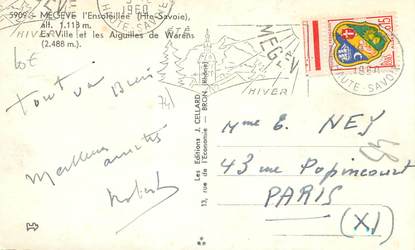 5909 - MEGÈVE l'Ensoleillée (Hte-Savoie),
alt. 1.113 m.
En Ville et les Aiguilles de Warens
(2.488 m.).
10€
Tout va Bien
74
Meilleures amitiés
Robert
Les Editions J. CELLARD
13, rue de l'Economie — BRON (Rhône)
1960
HAUTE-SAVOIE
HIVER
MEGÈVE
HIVER
1960
HAUTE-SAVOIE
Mme E. NEY
43 rue Popincourt
PARIS
(XI)